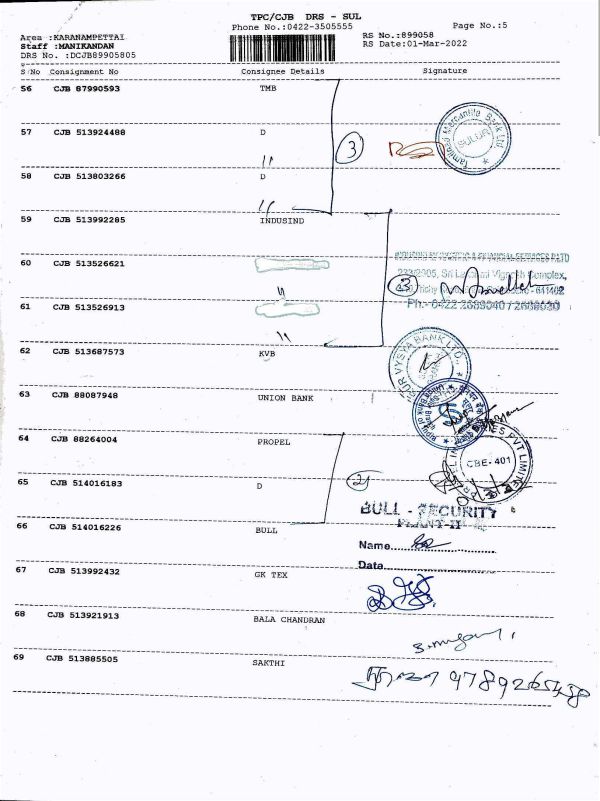 TPC/CJB DRS - SUL
Phone No.:0422-3505555
Page No.:5
Area :KARANAMPETTAI
RS No.:899058
Staff :MANIKANDAN
RS Date:01-Mar-2022
DRS No. :DCJB89905805
S No Consignment No Consignee Details Signature
56 CJB 87990593 TMB
Tamilnad Mercantile Bank Ltd.
SULUR
57 CJB 513924488 D
3
58 CJB 513803266 D
59 CJB 513992285 INDUSIND
60 CJB 513526621
61 CJB 513526913
3
Ph:- 0422 2689040 / 2689020
62 CJB 513687573 KVB
VYSYA BANK LTD.
63 CJB 88087948 UNION BANK
64 CJB 88264004 PROPEL
CBE- 401
PVT LIMITED
65 CJB 514016183 D
2
BULL - SECURITY
PLANT-II
66 CJB 514016226 BULL
Name
Date
67 CJB 513992432 GK TEX
68 CJB 513921913 BALA CHANDRAN
69 CJB 513885505 SAKTHI